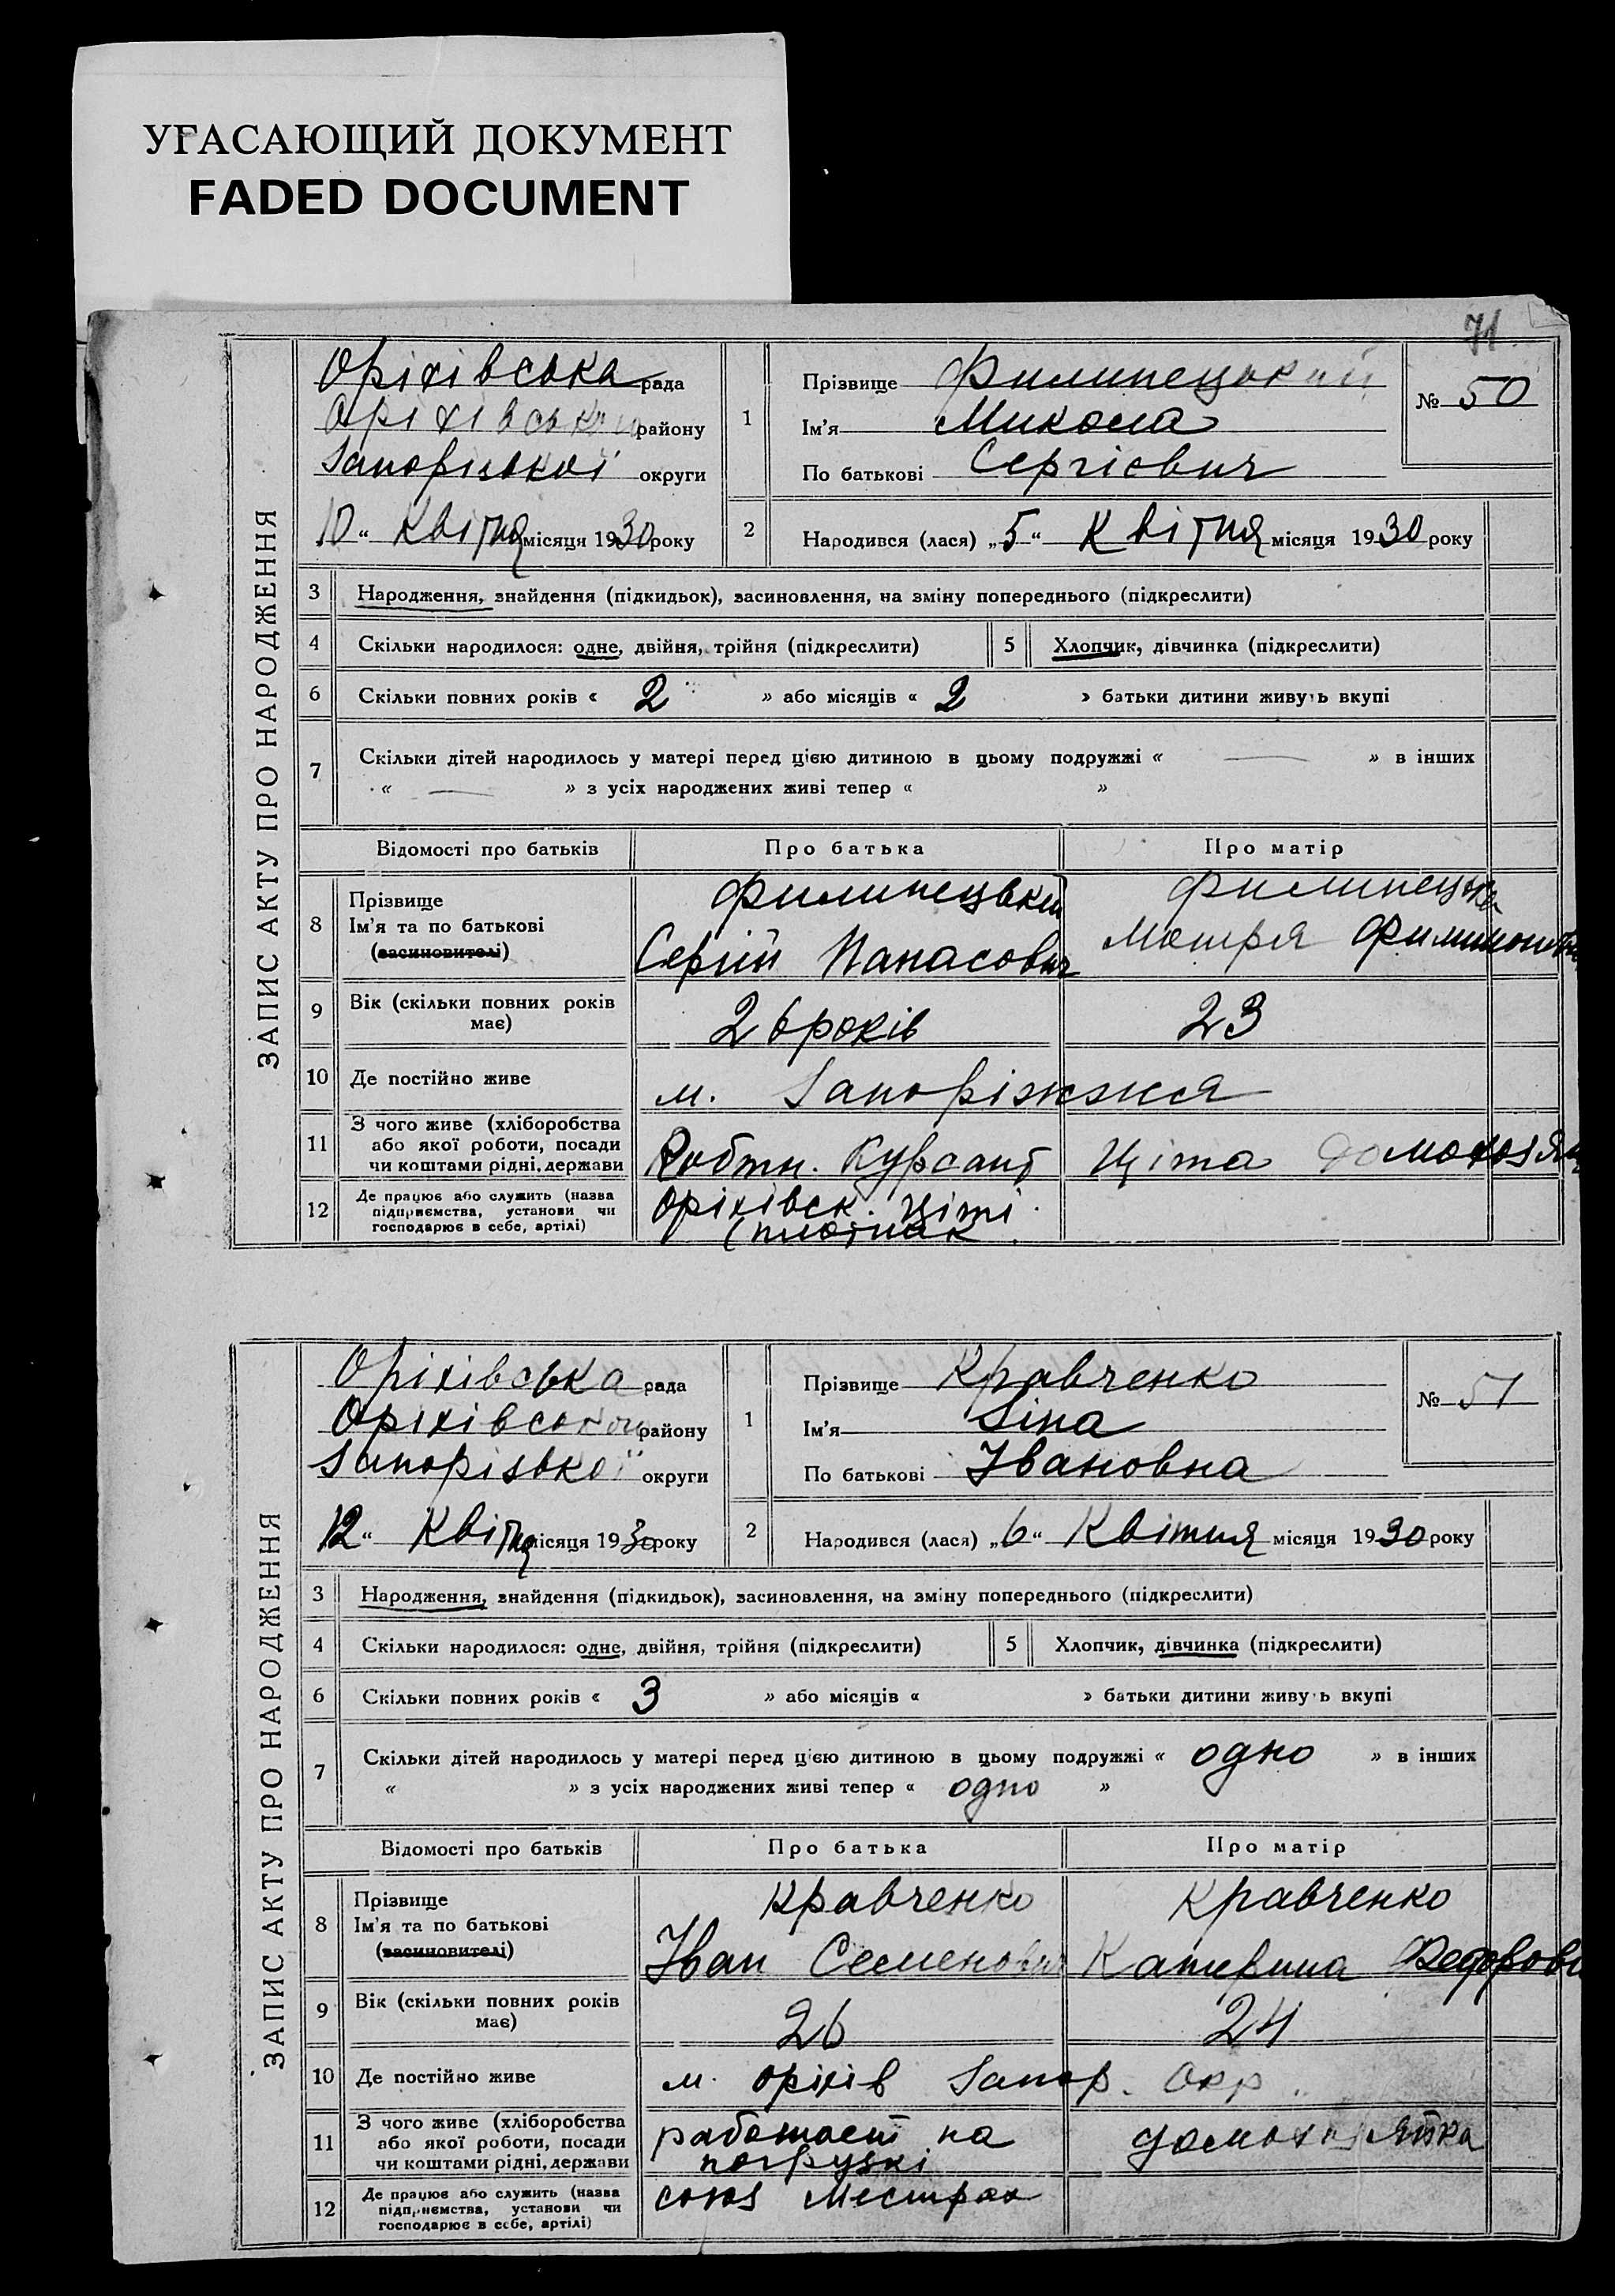 УГАСАЮЩИЙ ДОКУМЕНТ
FADED DOCUMENT
71
ЗАПИС АКТУ ПРО НАРОДЖЕННЯ
Оріхівська рада
Оріхівського району
Запорізької округи
10 " Квітня місяця 1930 року
1
Прізвище Филипецький
Ім'я Микола
По батькові Сергієвич
№ 50
2 Народився (лася) „5" Квітня місяця 1930 року
3 Народження, знайдення (підкидьок), засиновлення, на зміну попереднього (підкреслити)
4 Скільки народилося: одне, двійня, трійня (підкреслити) 5 Хлопчик, дівчинка (підкреслити)
6 Скільки повних років « 2 » або місяців « 2 » батьки дитини живуть вкупі
7 Скільки дітей народилось у матері перед цією дитиною в цьому подружжі « — » в інших
« — » з усіх народжених живі тепер « »
Відомості про батьків Про батька Про матір
8 Прізвище Филипецький Филипецька
Ім'я та по батькові
(засиновителі) Сергій Панасович Мотря
9 Вік (скільки повних років має) 26 років 23
10 Де постійно живе м. Запоріжжя
11 З чого живе (хліборобства
або якої роботи, посади
чи коштами рідні, держави Робтн. Курсант Ціта домохозяйка
12 Де працює або служить (назва
підприємства, установи чи
господарює в себе, артілі) Оріхівск. Ціті
(плотнак
ЗАПИС АКТУ ПРО НАРОДЖЕННЯ
Оріхівська рада
Оріхівського району
Запорізької округи
12 " Квітня місяця 1930 року
1
Прізвище Кравченко
Ім'я Зіна
По батькові Івановна
№ 51
2 Народився (лася) „6" Квітня місяця 1930 року
3 Народження, знайдення (підкидьок), засиновлення, на зміну попереднього (підкреслити)
4 Скільки народилося: одне, двійня, трійня (підкреслити) 5 Хлопчик, дівчинка (підкреслити)
6 Скільки повних років « 3 » або місяців « » батьки дитини живуть вкупі
7 Скільки дітей народилось у матері перед цією дитиною в цьому подружжі « одно » в інших
« » з усіх народжених живі тепер « одно »
Відомості про батьків Про батька Про матір
8 Прізвище Кравченко Кравченко
Ім'я та по батькові
(засиновителі) Іван Семенович Катерина Федоровн
9 Вік (скільки повних років має) 26 24
10 Де постійно живе м. Оріхів Запор. Окр.
11 З чого живе (хліборобства
або якої роботи, посади
чи коштами рідні, держави работает на погрузкі домохозяйка
12 Де працює або служить (назва
підприємства, установи чи
господарює в себе, артілі) союз Местран